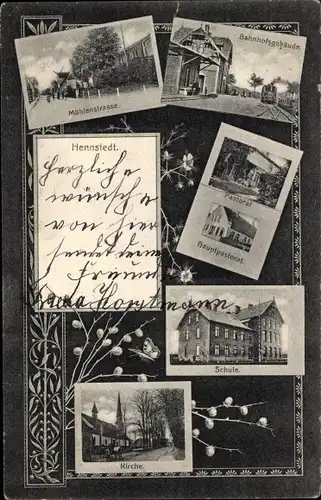 Mühlenstrasse.
Bahnhofsgebäude.
Hennstedt.
Herzliche
wünsche
von hier
sendet deine
Freundin
Pastorat
Hauptpastorat.
Schule.
Kirche.